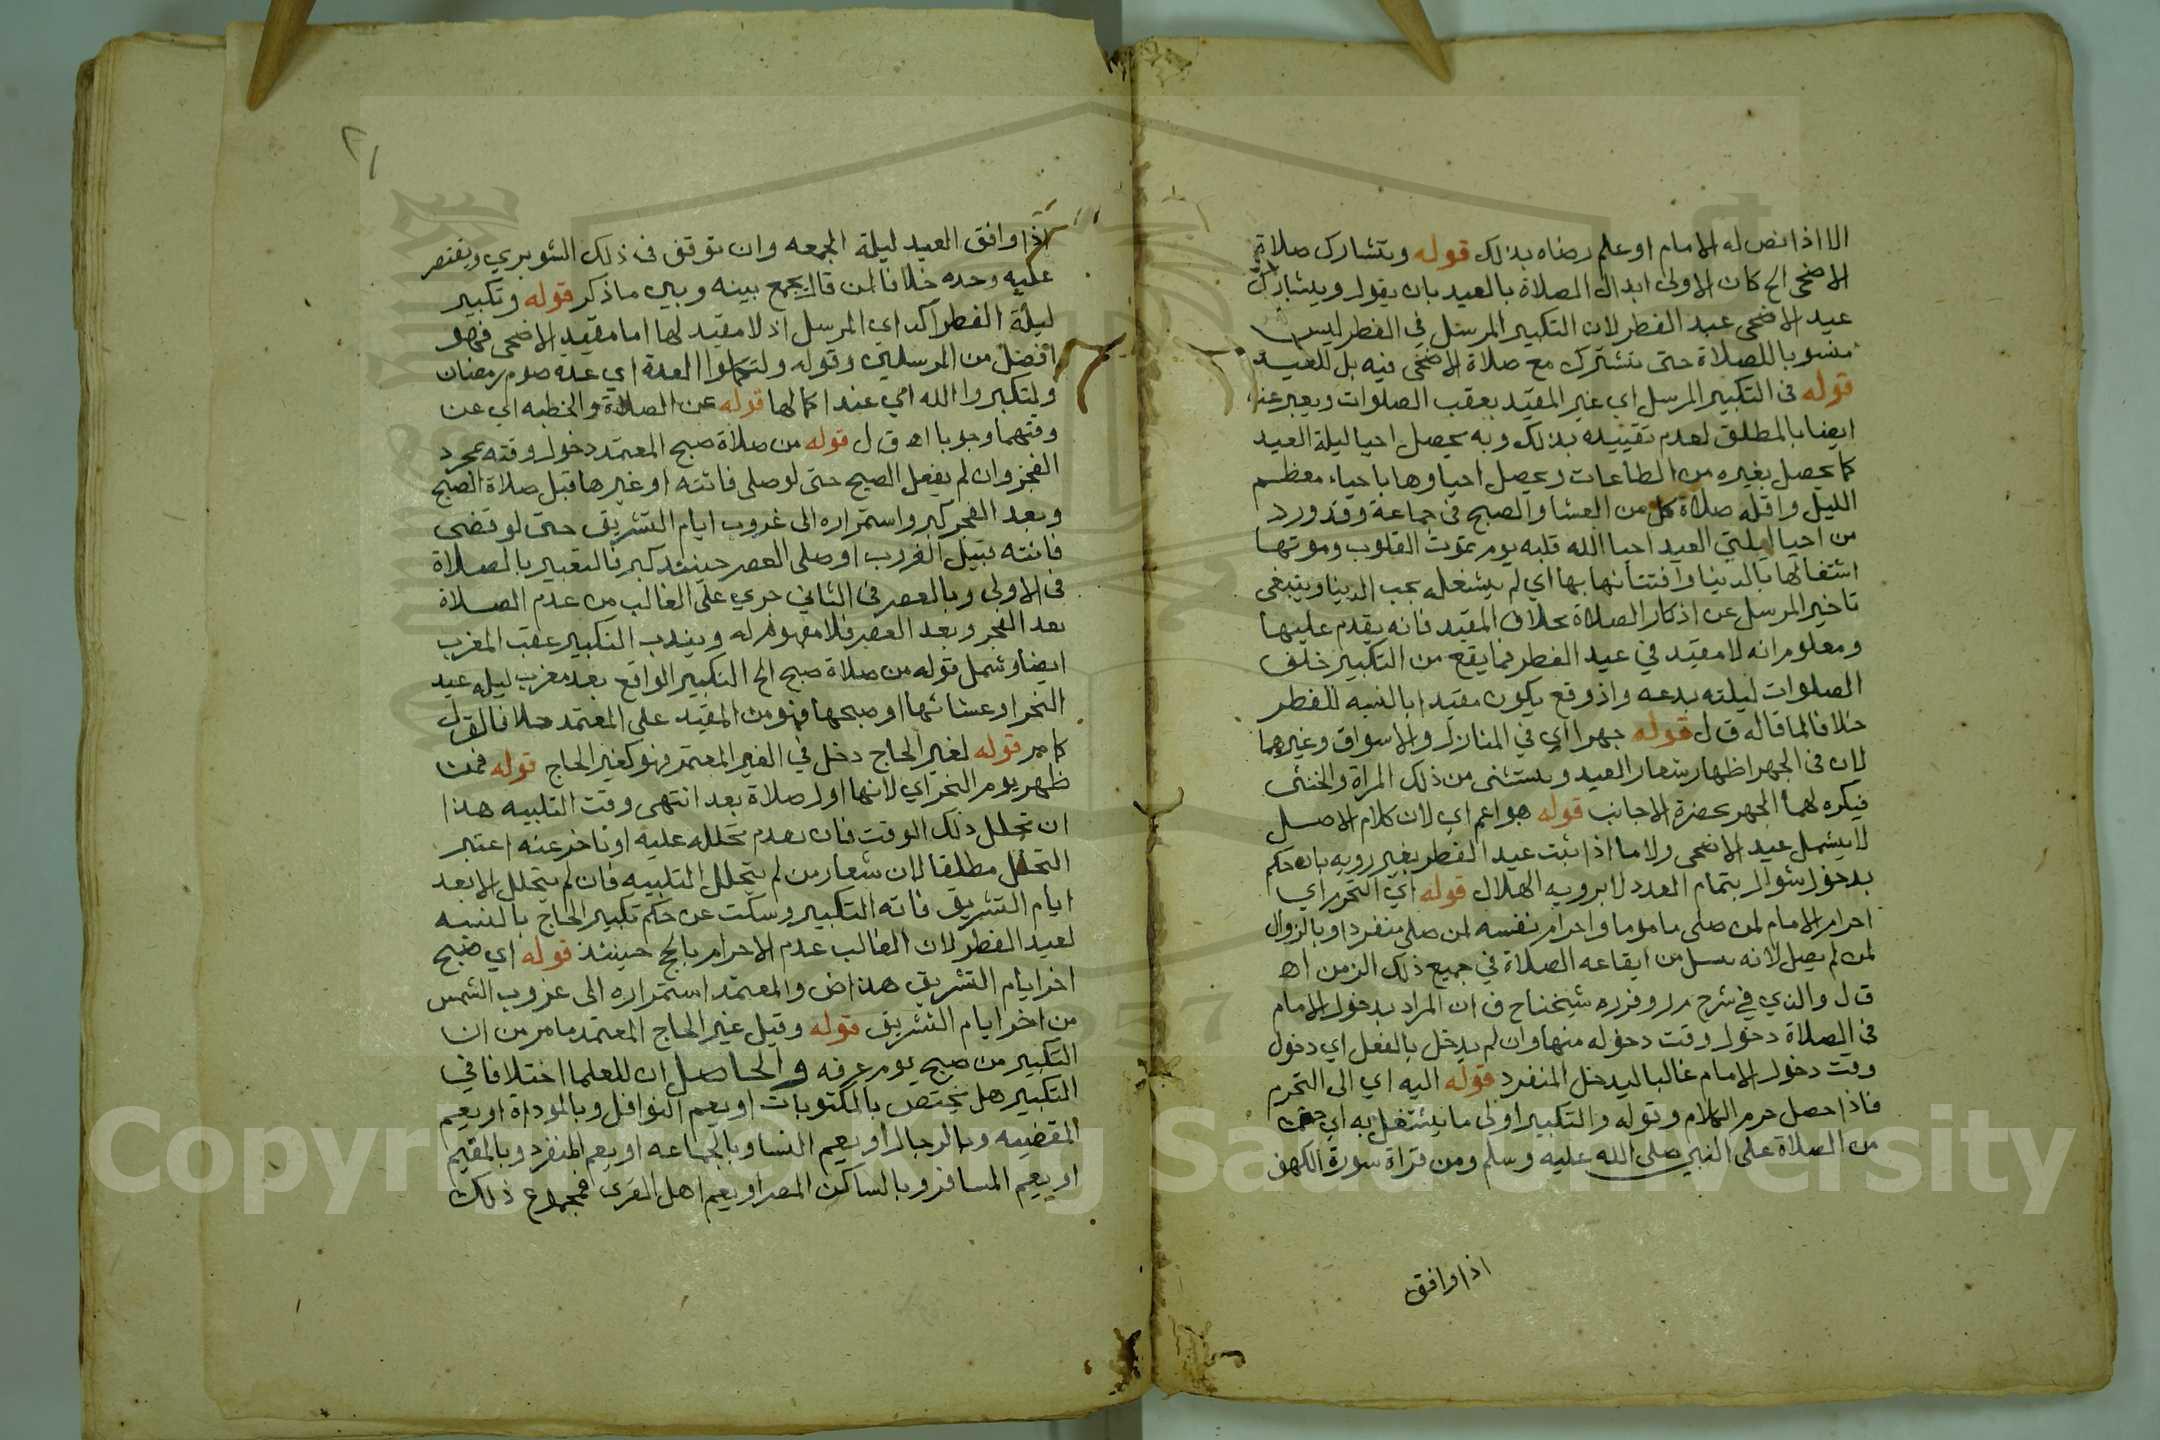 الا اذا نص له الامام او علم رضاه بذلك قوله وتشارك صلاة
الاضحى الخ كان الاولى ابدال الصلاة بالعيد بان يقول ويشارك
عيد الاضحى عيد الفطر لان التكبير المرسل في الفطر ليس
منسوبا للصلاة حتى تشترك مع صلاة الاضحى فيه بل للعيد
قوله في التكبير المرسل اي غير المقيد بعقب الصلوات ويعبر عنه
ايضا بالمطلق لعدم تقييده بذلك وبه يحصل احيا ليلة العيد
كما يحصل بغيره من الطاعات ويحصل احياوها باحياء معظم
الليل واقله صلاة كل من العشا والصبح في جماعة وقد ورد
من احيا ليلتي العيد احيا الله قلبه يوم تموت القلوب وموتها
اشتغالها بالدنيا وافتتانها بها اي لم يشغله بحب الدنيا وينبغي
تاخير المرسل عن اذكار الصلاة بخلاف المقيد فانه يقدم عليها
ومعلوم انه لا مقيد في عيد الفطر فما يقع من التكبير خلف
الصلوات ليلته بدعه واذ وقع يكون مقيدا بالنسبه للفطر
خلافا لما قاله ق ل قوله جهرا اي في المنازل والاسواق وغيرهما
لان في الجهر اظهار شعار العيد ويستثنى من ذلك المراة والخنثى
فيكره لهما الجهر بحضرة الاجانب قوله هو اعم اي لان كلام الاصل
لا يشمل عيد الاضحى ولا ما اذا ثبت عيد الفطر بغير رويه بان حكم
بدخول شوال بتمام العدد لا برويه الهلال قوله اي التحرم اي
احرام الامام لمن صلى ماموما واحرام نفسه لمن صلى منفردا وبالزوال
لمن لم يصل لانه بسبيل من ايقاعه الصلاة في جميع ذلك الزمن اه
ق ل والذي في شرح م ر وقرره شيخنا ح ف ان المراد بدخول الامام
في الصلاة دخول وقت دخوله منها وان لم يدخل بالفعل اي دخول
وقت دخول الامام غالبا ليدخل المنفرد قوله اليه اي الى التحرم
فاذا حصل حرم الكلام وقوله والتكبير اولى ما يشتغل به اي حتى
من الصلاة على النبي صلى الله عليه وسلم ومن قراة سورة الكهف
اذا وافق
٢١
اذا وافق العيد ليلة الجمعه وان توقف في ذلك الشوبري ويقتصر
عليه وحده خلافا لمن قال يجمع بينه وبين ما ذكر قوله وتكبير
ليلة الفطر اكد اي المرسل اذ لا مقيد لها اما مقيد الاضحى فهو
افضل من المرسلين وقوله ولتكملوا العدة اي عدة صوم رمضان
ولتكبروا الله اي عند اكمالها قوله عن الصلاة والخطبه اي عن
وقتهما وجوبا اه ق ل قوله من صلاة صبح المعتمد دخول وقته بمجرد
الفجر وان لم يفعل الصبح حتى لو صلى فائته او غيرها قبل صلاة الصبح
وبعد الفجر كبر واستمراره الى غروب ايام التشريق حتى لو قضى
فائته قبيل الغروب او صلى العصر حينئذ كبر فالتعبير بالصلاة
في الاولى وبالعصر في الثاني جري على الغالب من عدم الصلاة
بعد الفجر وبعد العصر فلا مفهوم له ويندب التكبير عقب المغرب
ايضا وشمل قوله من صلاة صبح الخ التكبير الواقع بعد مغرب ليله عيد
النحر او عشائها او صبحها فهو من المقيد على المعتمد خلافا لق ل
كما مر قوله لغير الحاج دخل في الغير المعتمر فهو كغير الحاج قوله فمن
ظهر يوم النحر اي لانها اول صلاة بعد انتهى وقت التلبيه هذا
ان تحلل ذلك الوقت فان تقدم تحلله عليه او تاخر عنه اعتبر
التحلل مطلقا لان شعار من لم يتحلل التلبيه فان لم يتحلل الا بعد
ايام التشريق فاته التكبير وسكت عن حكم تكبير الحاج بالنسبه
لعيد الفطر لان الغالب عدم الاحرام بالحج حينئذ قوله اي صبح
اخر ايام التشريق هذا ض والمعتمد استمراره الى غروب الشمس
من اخر ايام التشريق قوله وقيل غير الحاج المعتمد ما مر من ان
التكبير من صبح يوم عرفه والحاصل ان للعلما اختلافا في
التكبير هل يختص بالمكتوبات او يعم النوافل وبالموداة او يعم
المقضيه وبالرجال او يعم النسا وبالجماعه او يعم المنفرد وبالمقيم
او يعم المسافر وبالساكن المصر او يعم اهل القرى فمجموع ذلك
Copyright © King Saud University